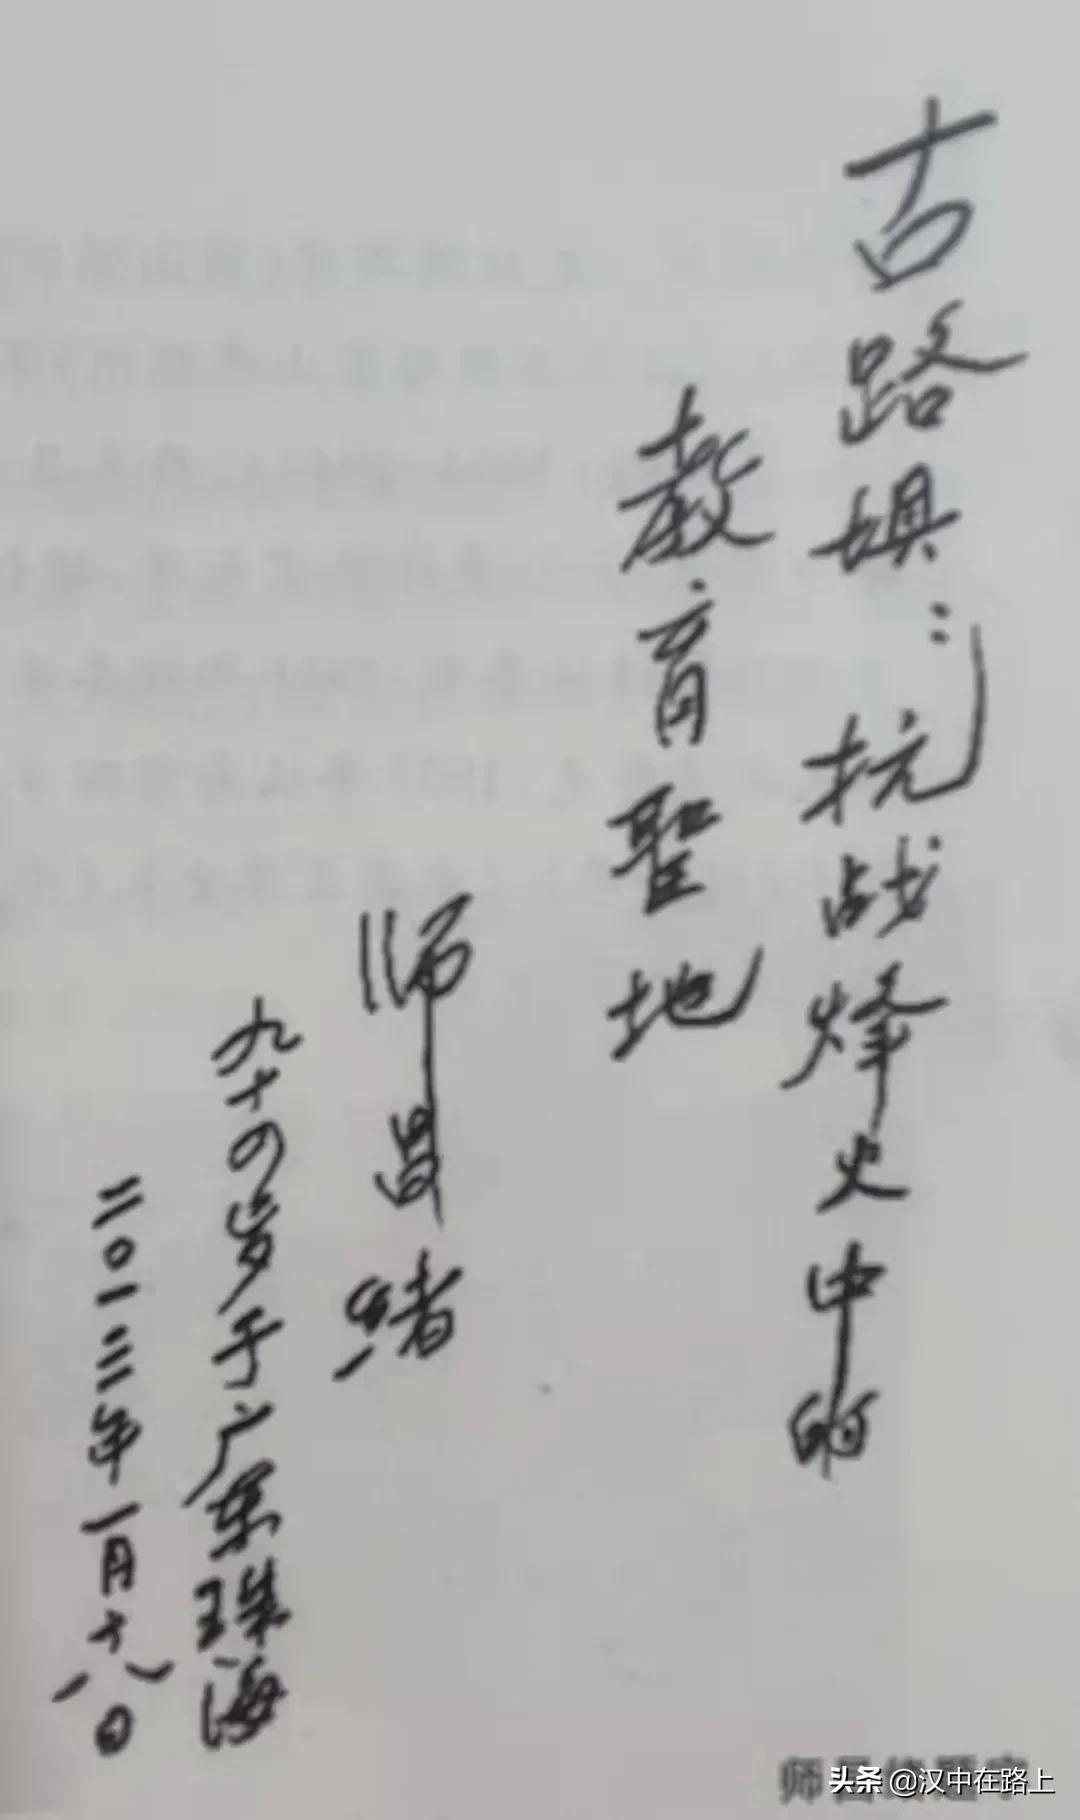 古路埧：抗战烽火中的
教育聖地
师昌绪
九十四岁于广东珠海
二〇一三年一月十八日
师昌绪题字
头条 @汉中在路上